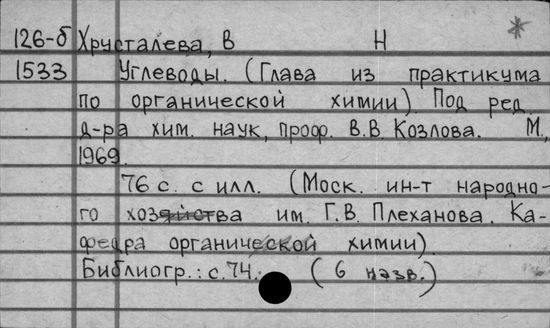 126-б Хрусталева, В Н *
1533 Углеводы. (Глава из практикума
по органической химии) Под ред.
д-ра хим. наук, проф. В.В. Козлова. М.,
1969.
76 с. с илл. (Моск. ин-т народно-
го хозяйства им. Г.В. Плеханова. Ка-
федра органической химии)
Библиогр.: с. 74. (6 назв.)